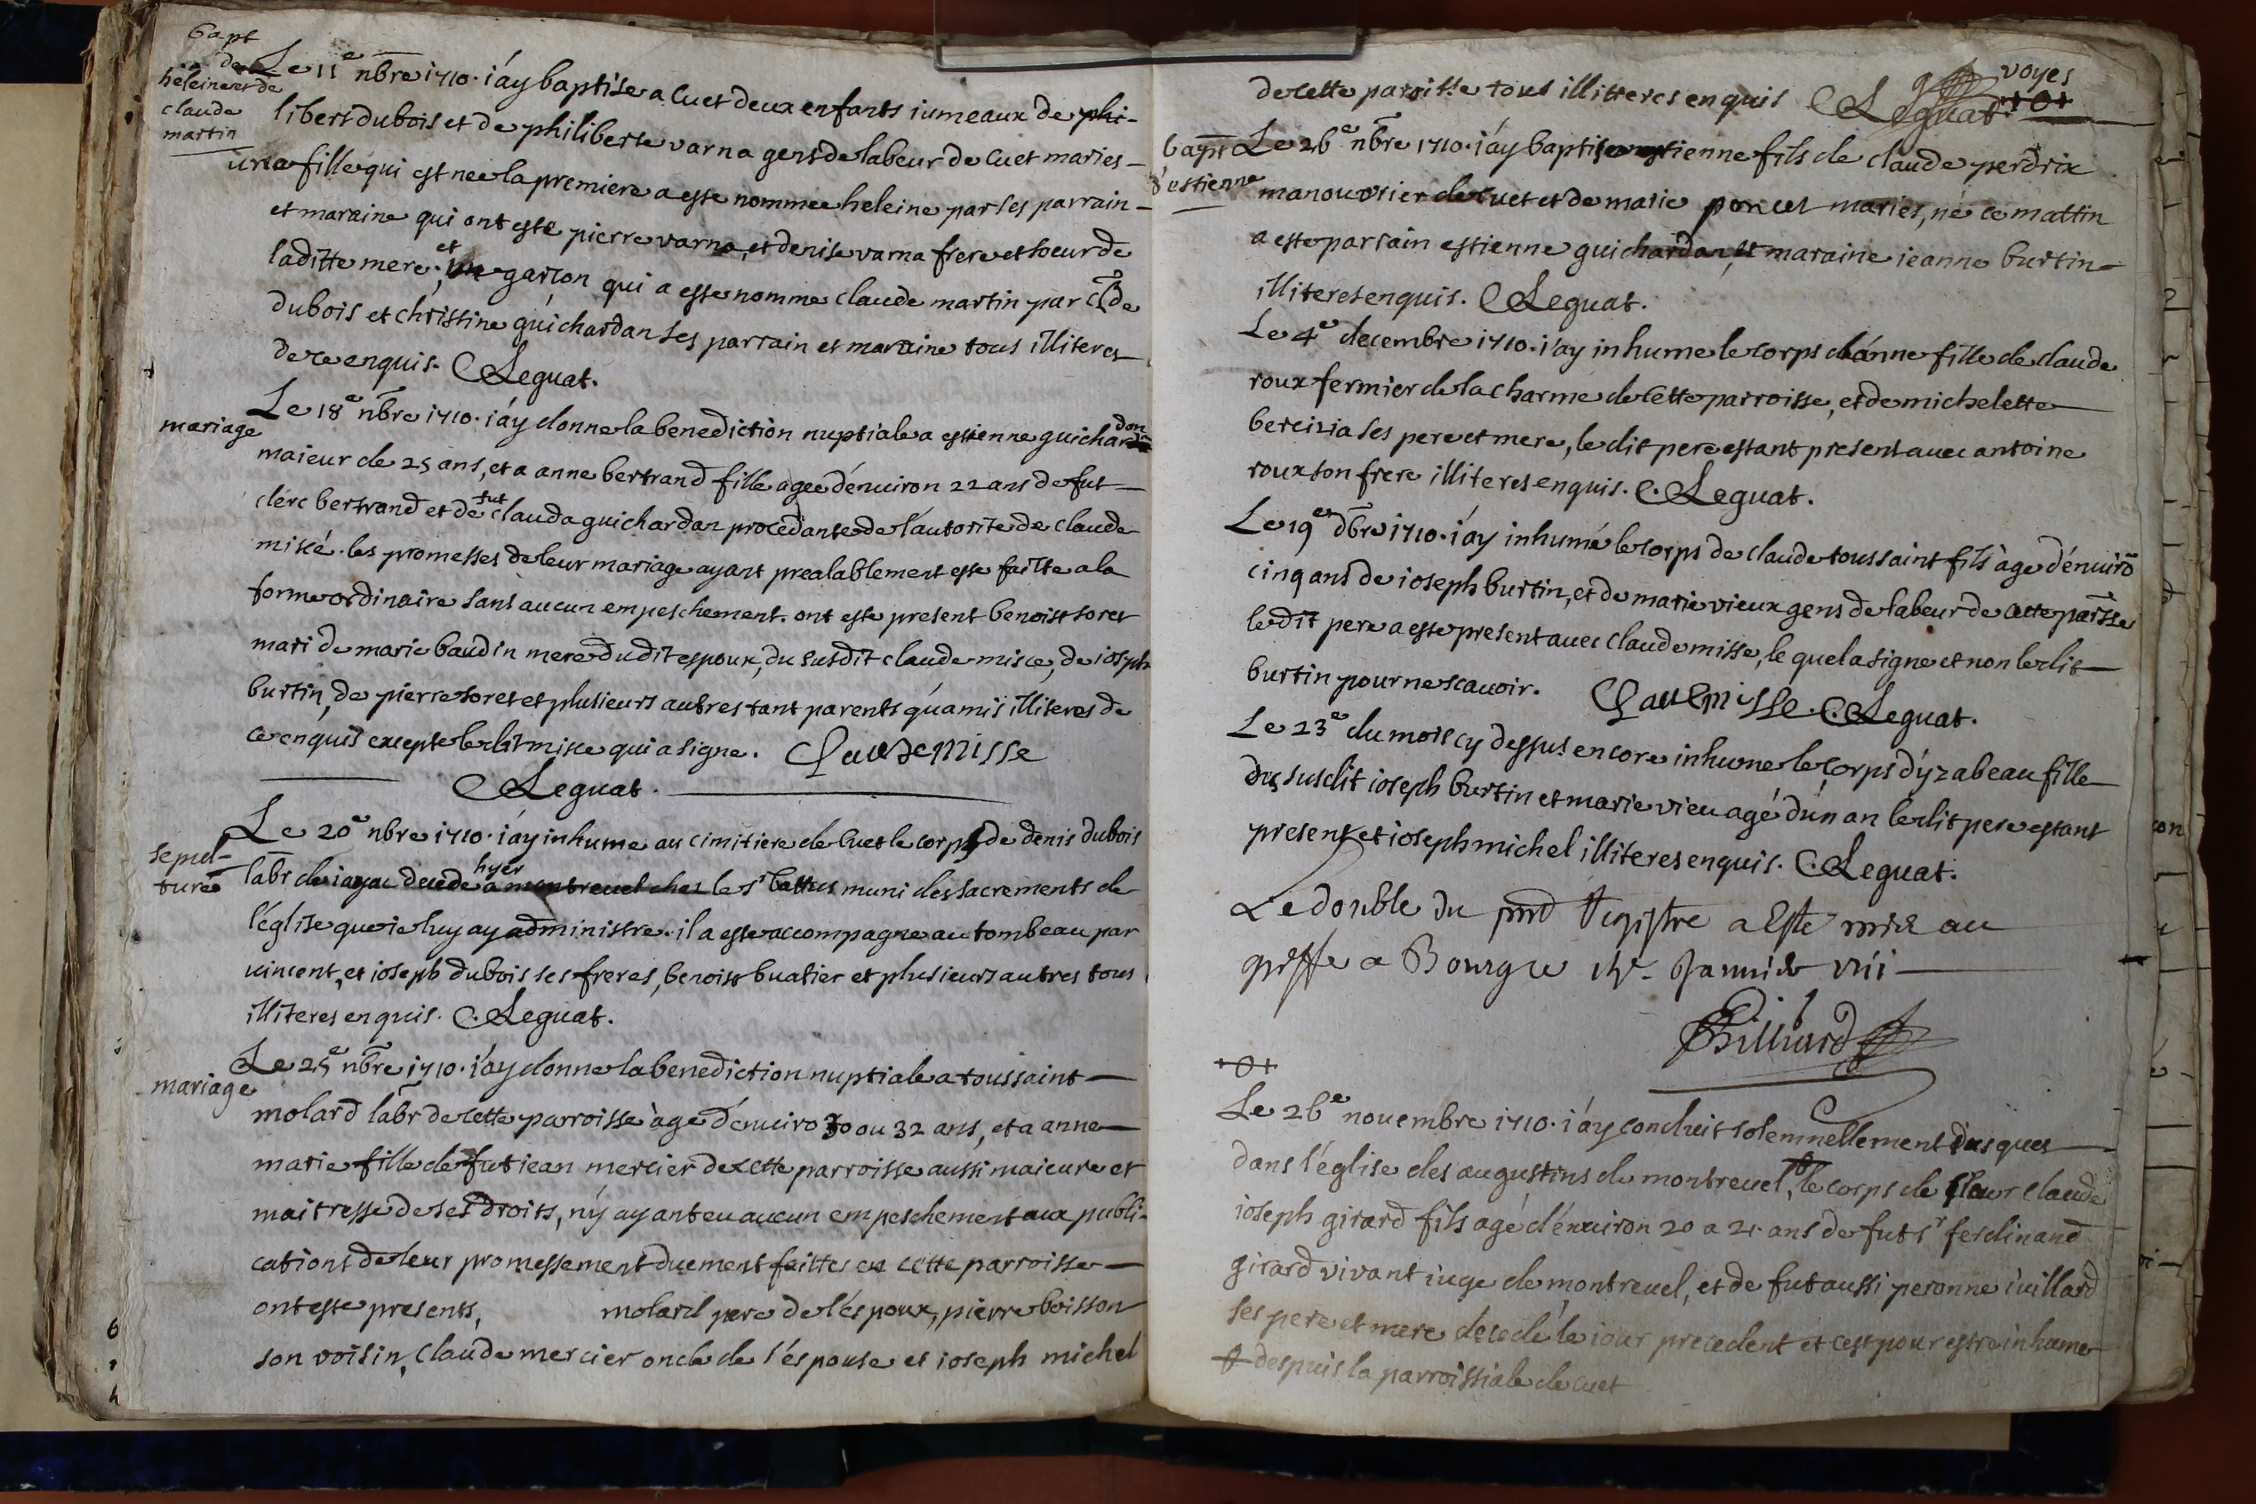 bapt
de
heleine et de
claude
martin
Le 11e nbre 1710. i'ay baptise a Cuet deux enfants iumeaux de phi-
libert dubois et de philiberte varna gens de labeur de Cuet maries
une fille qui est nee la premiere a este nommee heleine par ses parrain
et maraine qui ont este pierre varna, et denise varna frere et soeur de
laditte mere; et un garcon qui a este nomme claude martin par Cl̄de
dubois et christine guichardan ses parrain et maraine tous illiteres
de ce enquis. C Leguat.
mariage
Le 18e nbre 1710. i'ay donne la benediction nuptiale a estienne guichardon
maieur de 25 ans, et a anne bertrand fille agee d'enuiron 22 ans de fut
clerc bertrand et de fut clauda guichardan procedante de l'autorite de claude
misse. les promesses de leur mariage ayant prealablement este faitte a la
forme ordinaire sans aucun empeschement. ont este present benoist soret
mari de marie baudin mere dudit espoux, du susdit claude misse, de ioseph
burtin, de pierre soret et plusieurs autres tant parents qu'amis illiteres de
ce enquis excepte ledit misse qui a signe. Claude Misse
C Leguat.
sepul-
ture
Le 20e nbre 1710. i'ay inhume au cimitiere de Cuet le corps de denis dubois
labr de iayac decede hyer a montreuel ches le sr battus muni des sacrements de
l'église que ie luy ay administre. il a este accompagne au tombeau par
uincent, et ioseph dubois ses freres, benoist buatier et plusieurs autres tous
illiteres enquis. C. Leguat.
mariage
Le 25e nbre 1710. i'ay donne la benediction nuptiale a toussaint
molard labr de cette parroisse àge d'enuiro 30 ou 32 ans, et a anne
marie fille de fut iean mercier de cette parroisse aussi maieure et
maitresse de ses droits, n'y ayant eu aucun empeschement aux publi-
cations de leur promessement duement faittes en cette parroisse
ont este presents, molard pere de l'espoux, pierre boisson
son voisin, claude mercier oncle de l'espouse et ioseph michel
de cette paroisse tous illitteres enquis C Leguat. voyes
+O+
bapt
d'estienne
Le 26e nbre 1710. i'ay baptise estienne fils de claude perdrix
manouvrier de Cuet et de marie poncet maries, né ce mattin
a este parrain estienne guichardan, et maraine ieanne burtin
illiteres enquis. C Leguat.
Le 4e decembre 1710. i'ay inhume le corps d'anne fille de claude
roux fermier de la charme de cette parroisse, et de michelette
bereizia ses pere et mere, le dit pere estant present auec antoine
roux son frere illiteres enquis. C. Leguat.
Le 19e dbre 1710. i'ay inhumé le corps de claude toussaint fils àge d'enuirō
cinq ans de ioseph burtin, et de marie vieux gens de labeur de cette parsse
ledit pere a este present auec claude misse, le quel a signe et non ledit
burtin pour ne scauoir. Claude Misse. C. Leguat.
Le 23e du mois cy dessus encore inhume le corps d'yzabeau fille
du susdit ioseph burtin et marie vieu agé d'un an ledit pere estant
present et ioseph michel illiteres enquis. C. Leguat.
Le double du pnt Registre a Esté mis au
greffe a Bourg ce Janvier
Billiard
+O+
Le 26e nouembre 1710. i'ay conduit solemnellement iusques
dans l'église des augustins de montreuel, le corps de sieur claude
ioseph girard fils agé d'enuiron 20 a 25 ans de fut sr ferdinand
girard vivant iuge de montreuel, et de fut aussi peronne iuillard
ses pere et mere decedé le iour precedent et cest pour estre inhume
despuis la parroissiale de Cuet